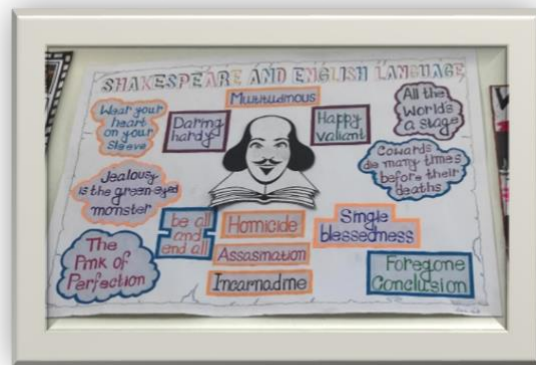 SHAKESPEARE AND ENGLISH LANGUAGE
Multitudinous
Wear your
heart
on your
sleeve
Daring
hardy
Happy
valiant
All the
World's
a stage
Cowards
die many times
before their
deaths
Jealousy
is the green-eyed
monster
be all
and
end all
Homicide
Single
blessedness
Assasination
The
Pink of
Perfection
Incarnadine
Foregone
Conclusion